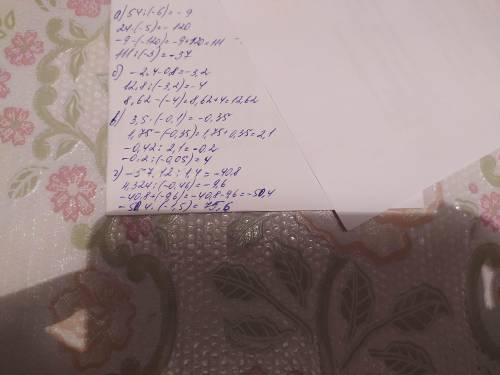 а) 54:(-6)=-9
24·(-5)=-120
-9-(-120)=-9+120=111
111:(-3)=-37
б) -2.4-0,8=-3,2
12.8:(-3,2)=-4
8,62-(-4)=8,62+4=12,62
в) 3,5·(-0,1)=-0,35
1,75-(-0,35)=1,75+0,35=2,1
-0,42:2,1=-0,2
-0,2:(-0,05)=4
г) -57.12:1,4=-40,8
4,324:(-0,46)=-9,6
-40,8+(-9,6)=-40,8-9,6=-50,4
-50,4·(-1,5)=75,6